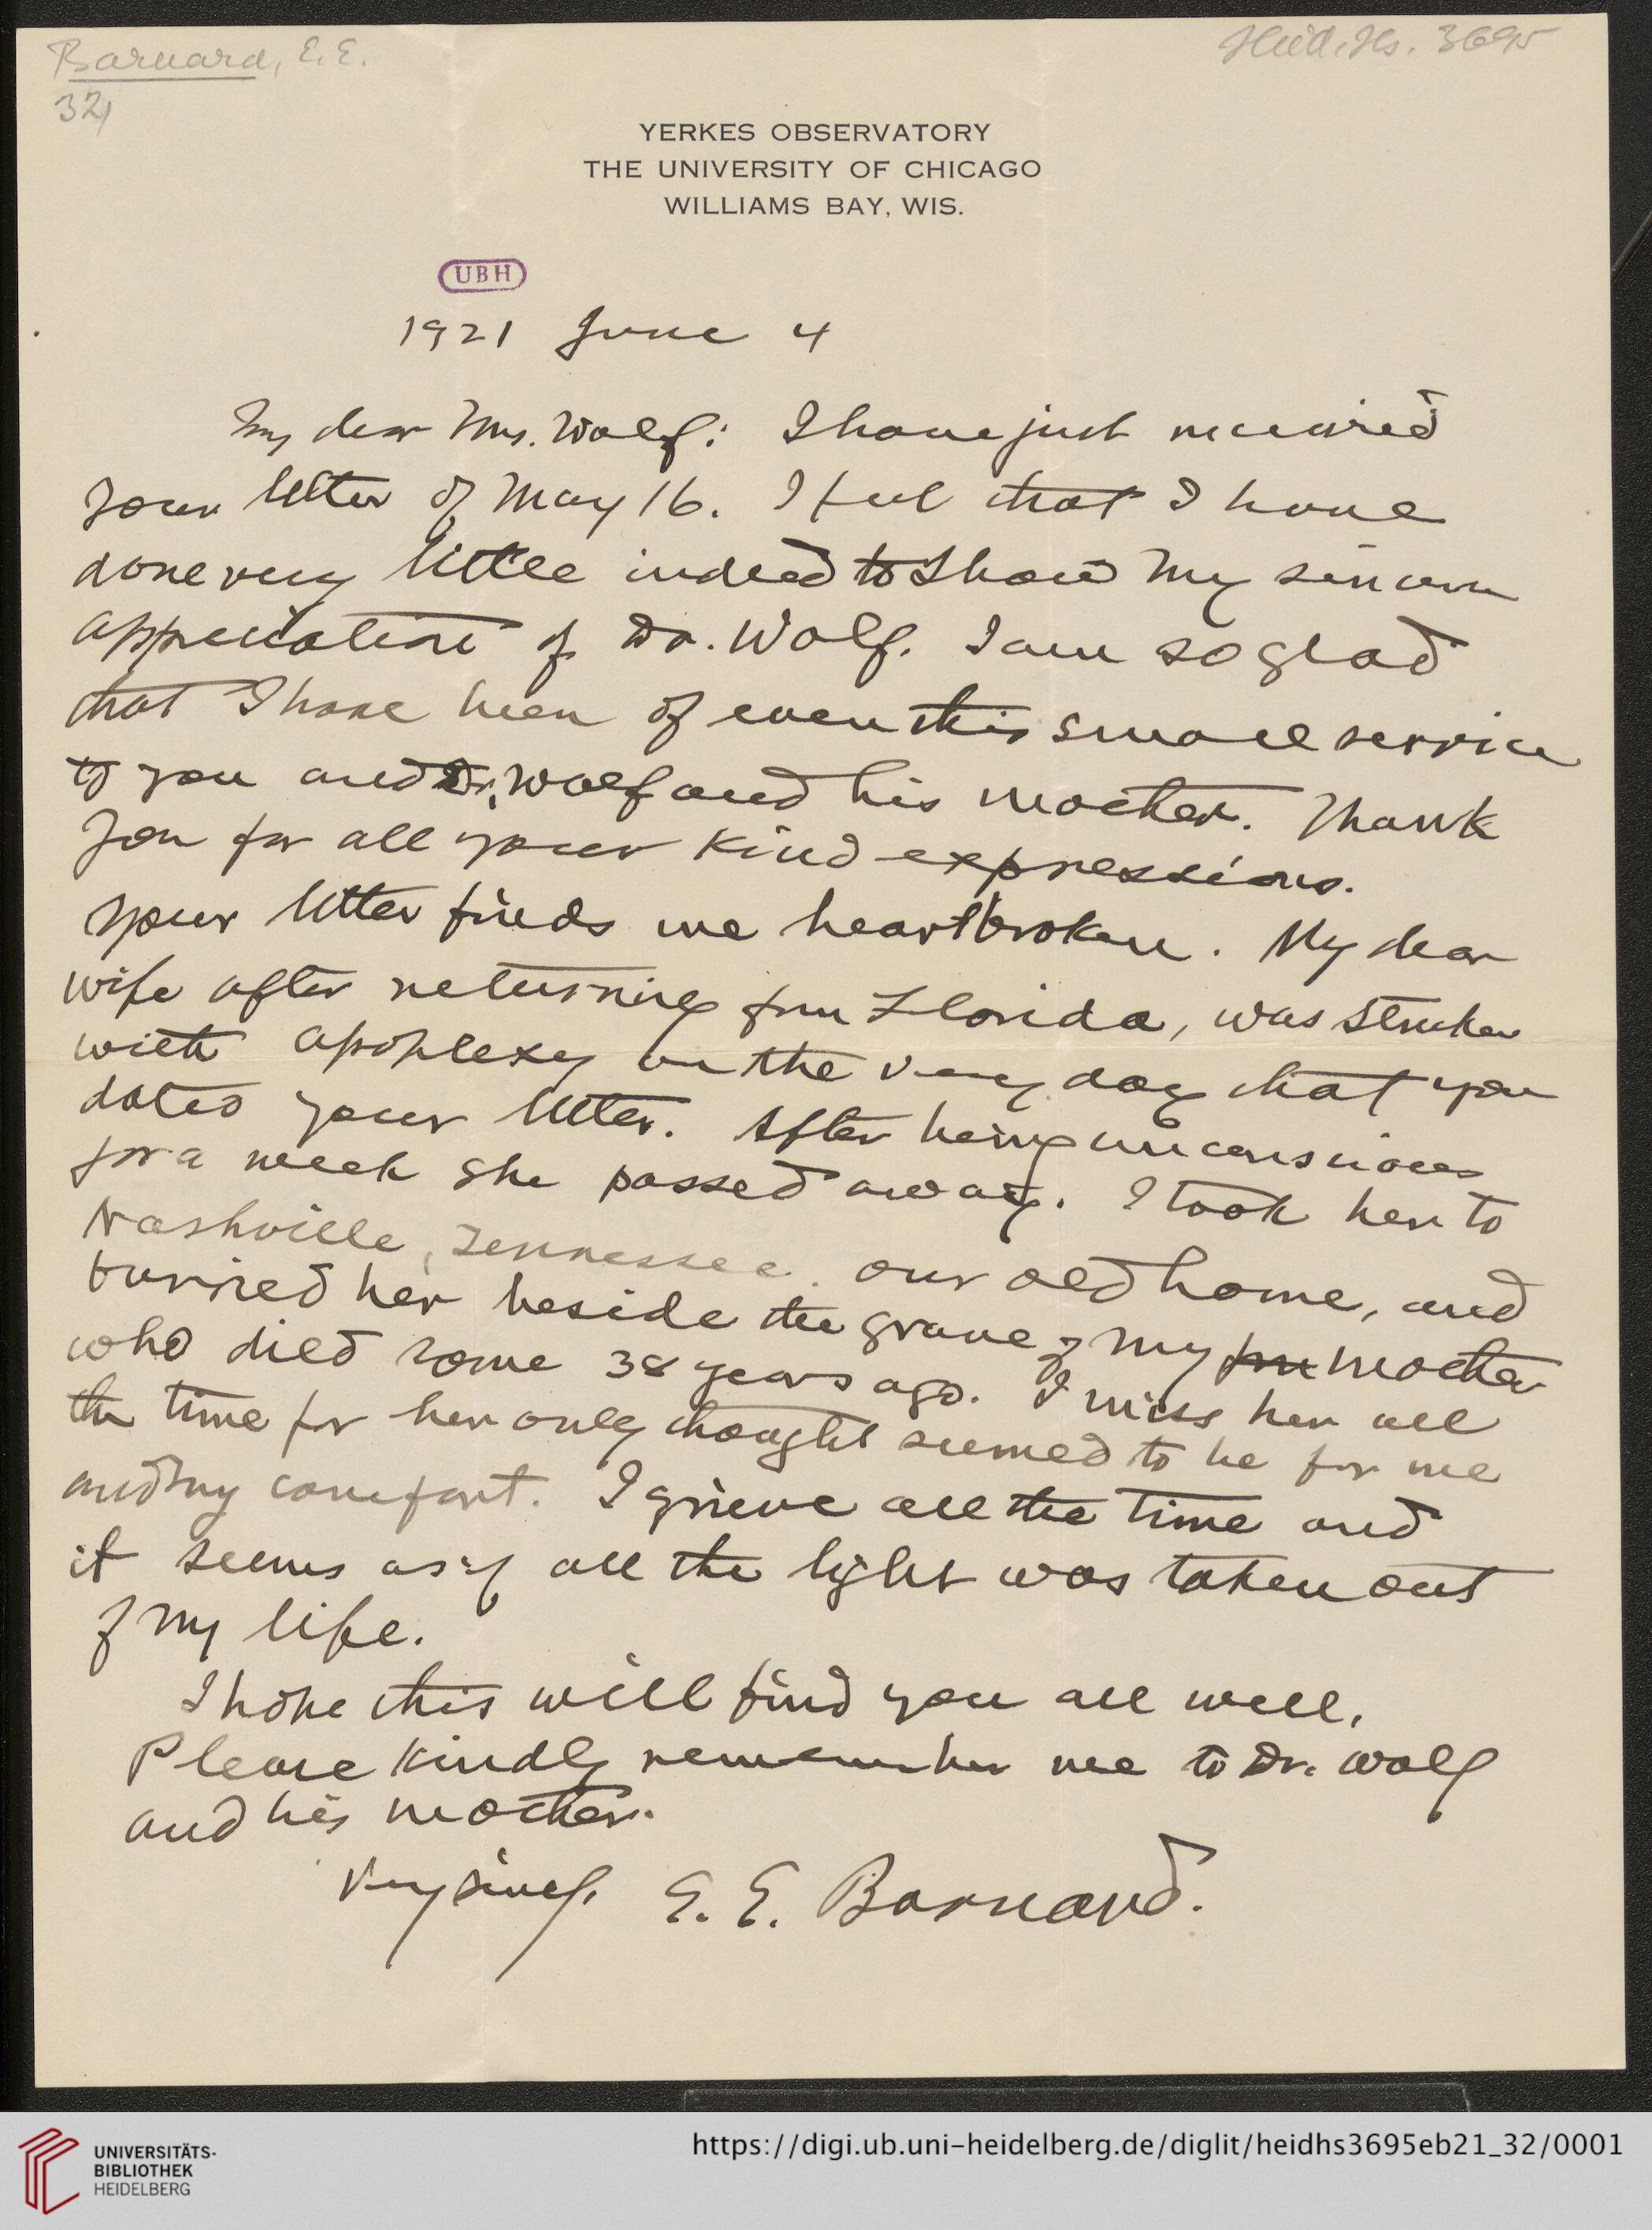 Barnard, E. E.
Heid. Hs. 3695
32,
YERKES OBSERVATORY
THE UNIVERSITY OF CHICAGO
WILLIAMS BAY, WIS.
UBH
1921 June 4
My dear Mrs. Wolf: I have just received
your letter of May 16. I feel that I have
done very little indeed to show my sincere
appreciation of Dr. Wolf. I am so glad
that I have been of even this small service
to you and Dr. Wolf and his mother. Thank
you for all your kind expressions.
Your letter finds me heartbroken. My dear
wife after returning from Florida, was stricken
with apoplexy on the very day that you
dated your letter. After being unconscious
for a week she passed away. I took her to
Nashville, Tennessee. our old home, and
burried her beside the grave of my mother
who died some 38 years ago. I miss her all
the time for her only thought seemed to be for me
and my comfort. I grieve all the time and
it seems as if all the light was taken out
of my life.
I hope this will find you all well.
Please kindly remember me to Dr. Wolf
and his mother.
Very sincely. E. E. Barnard.
UNIVERSITÄTS-
BIBLIOTHEK
HEIDELBERG
https://digi.ub.uni-heidelberg.de/diglit/heidhs3695eb21_32/0001